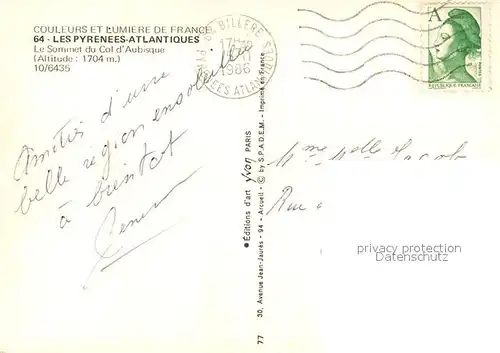 COULEURS ET LUMIERE DE FRANCE
64 - LES PYRENEES-ATLANTIQUES
Le Sommet du Col d'Aubisque
(Altitude : 1704 m.)
10/6435
BILLERE
17H
1986
PYRENEES ATLANTIQUES
A
REPUBLIQUE FRANCAISE
Amitiés d'une
belle région ensoleillée
à bientôt
● Editions d'art yvon PARIS
© by S.P.A.D.E.M. - Imprimé en France
30, Avenue Jean-Jaurès - 94 - Arcueil -
77
Rue
privacy protection
www.akpool.com